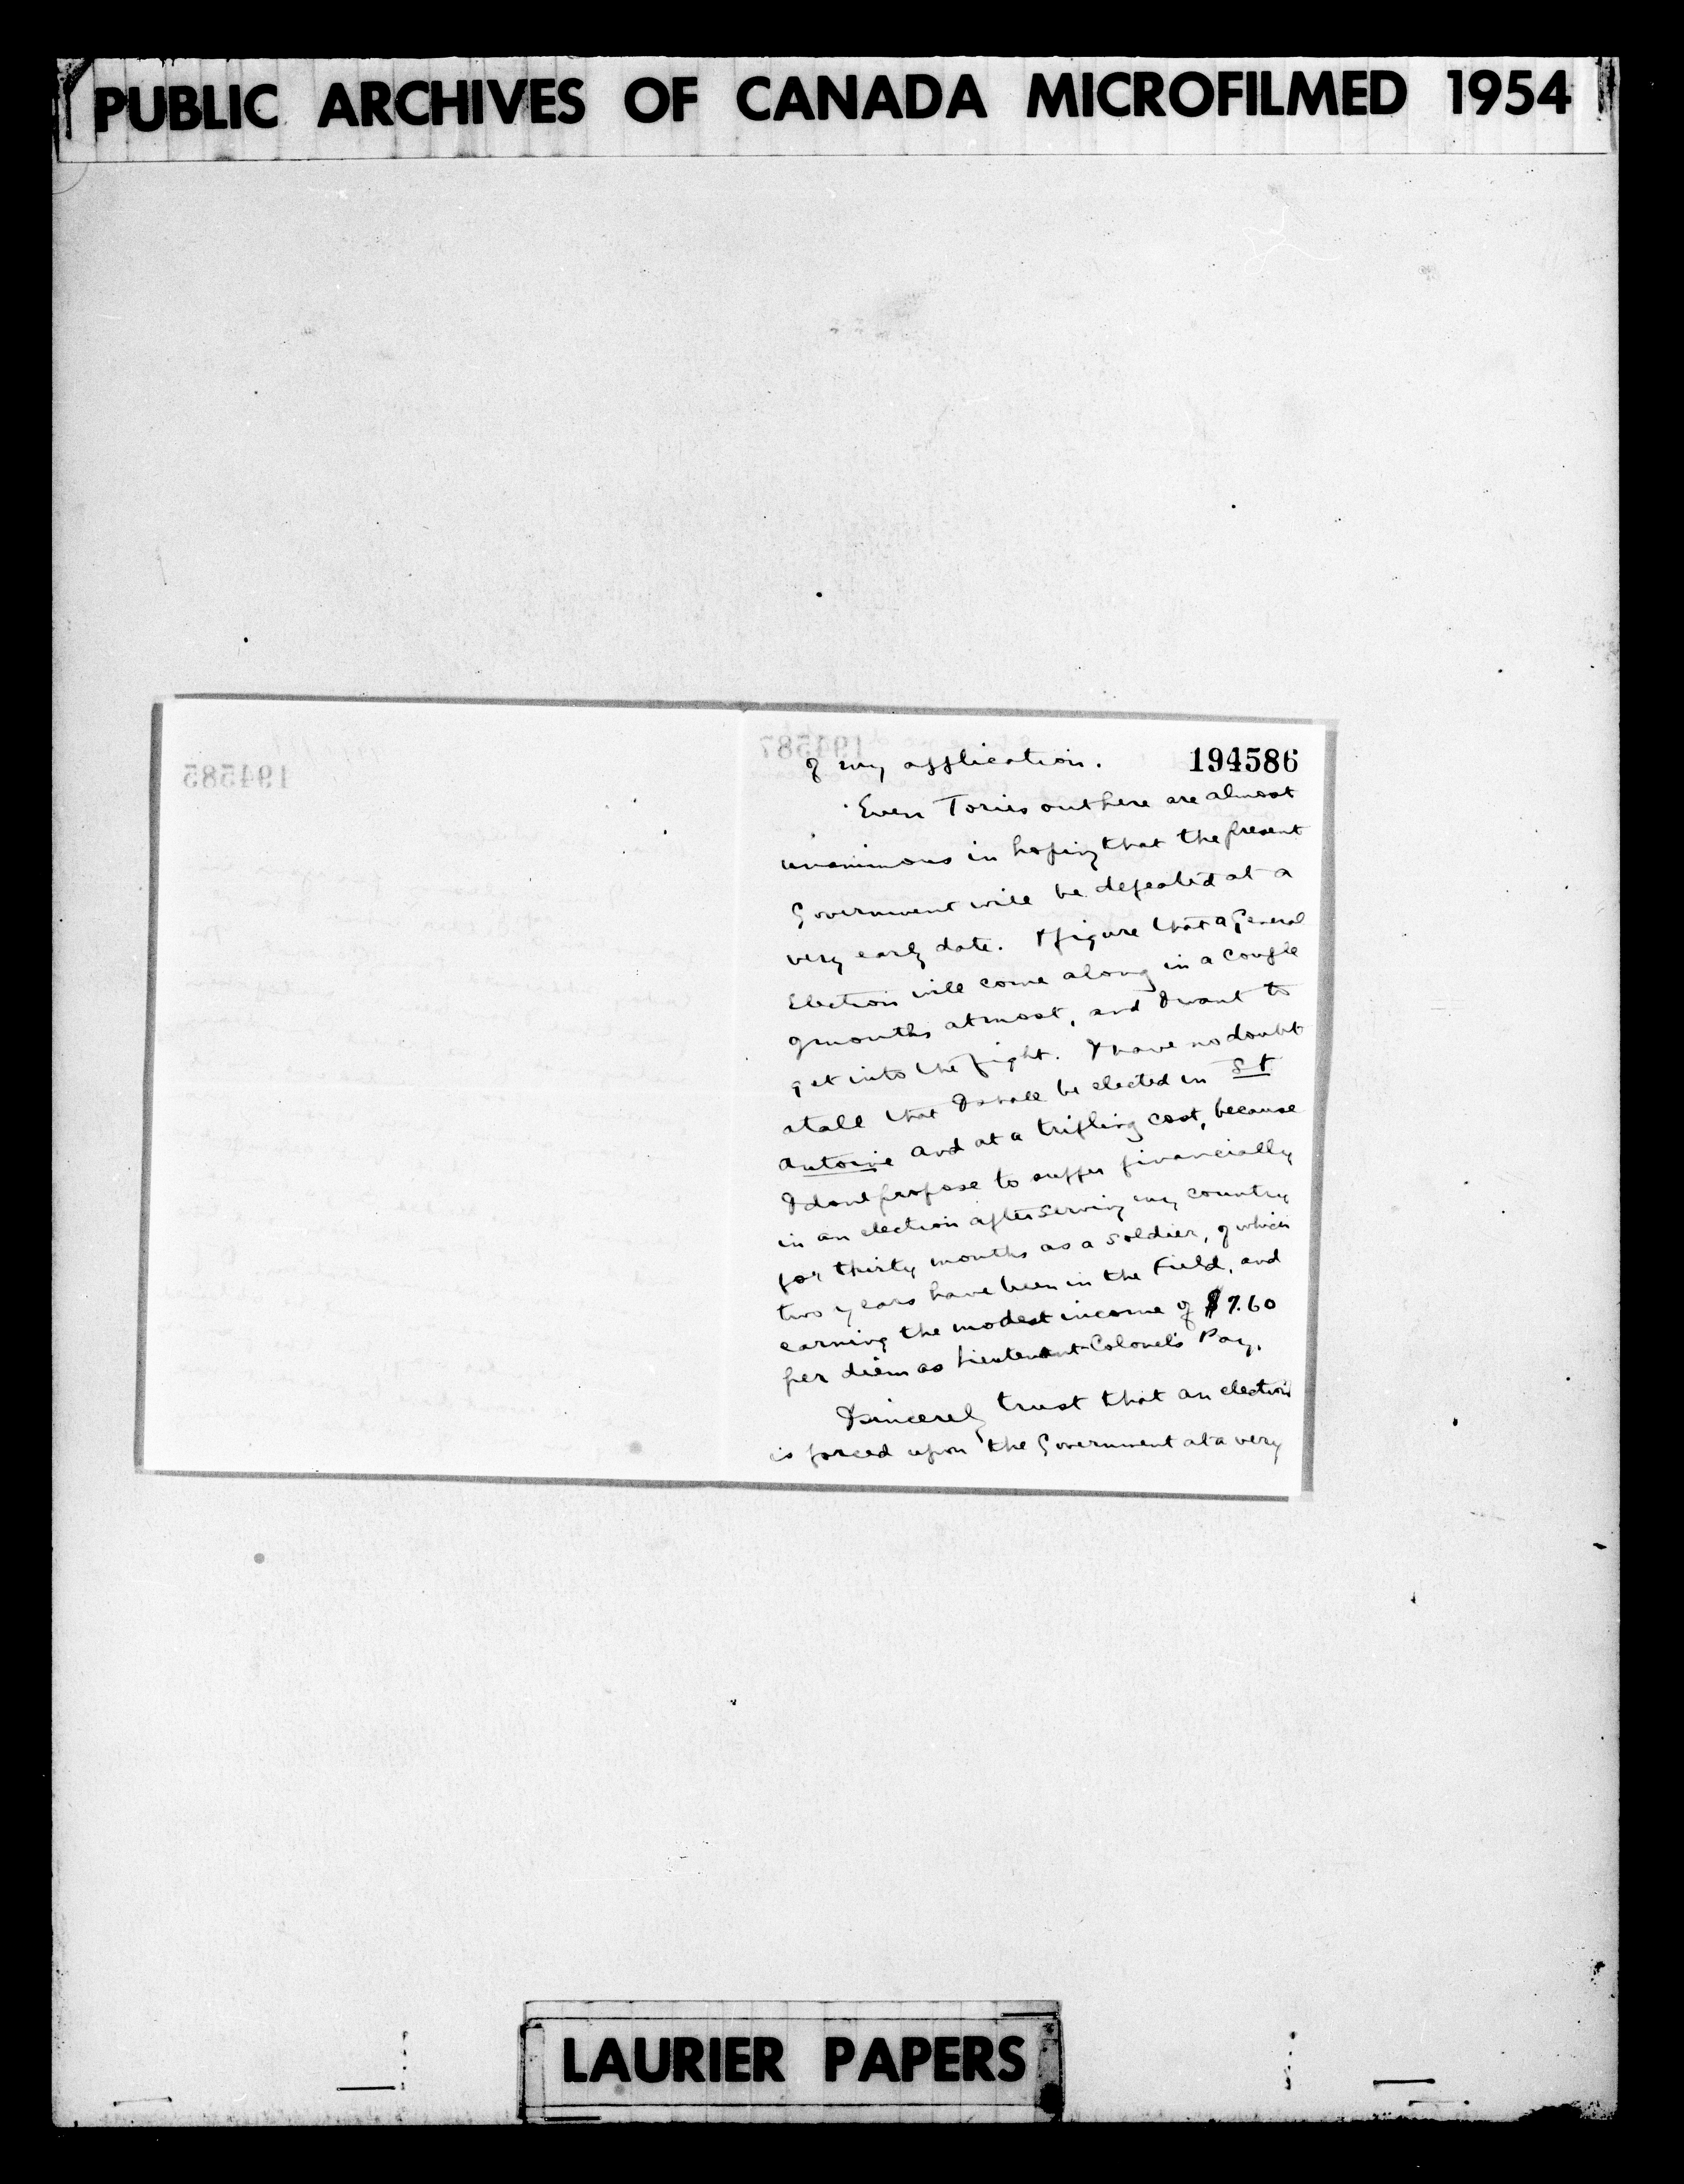 PUBLIC ARCHIVES OF CANADA MICROFILMED 1954
194586
of my application.
Even Tories out here are almost
unanimous in hoping that the present
Government will be defeated at a
very early date. I figure that a General
Election will come along in a couple
of months at most, and I want to
get into the fight. I have no doubt
at all that I shall be elected in St
Antoine and at a trifling cost, because
I dont propose to suffer financially
in an election after serving my country
for thirty months as a soldier, of which
two years have been in the Field, and
earning the modest income of $7.60
per diem as Lieutenant-Colonel's Pay.
I sincerely trust that an election
is forced upon the Government at a very
194585
194587
LAURIER PAPERS